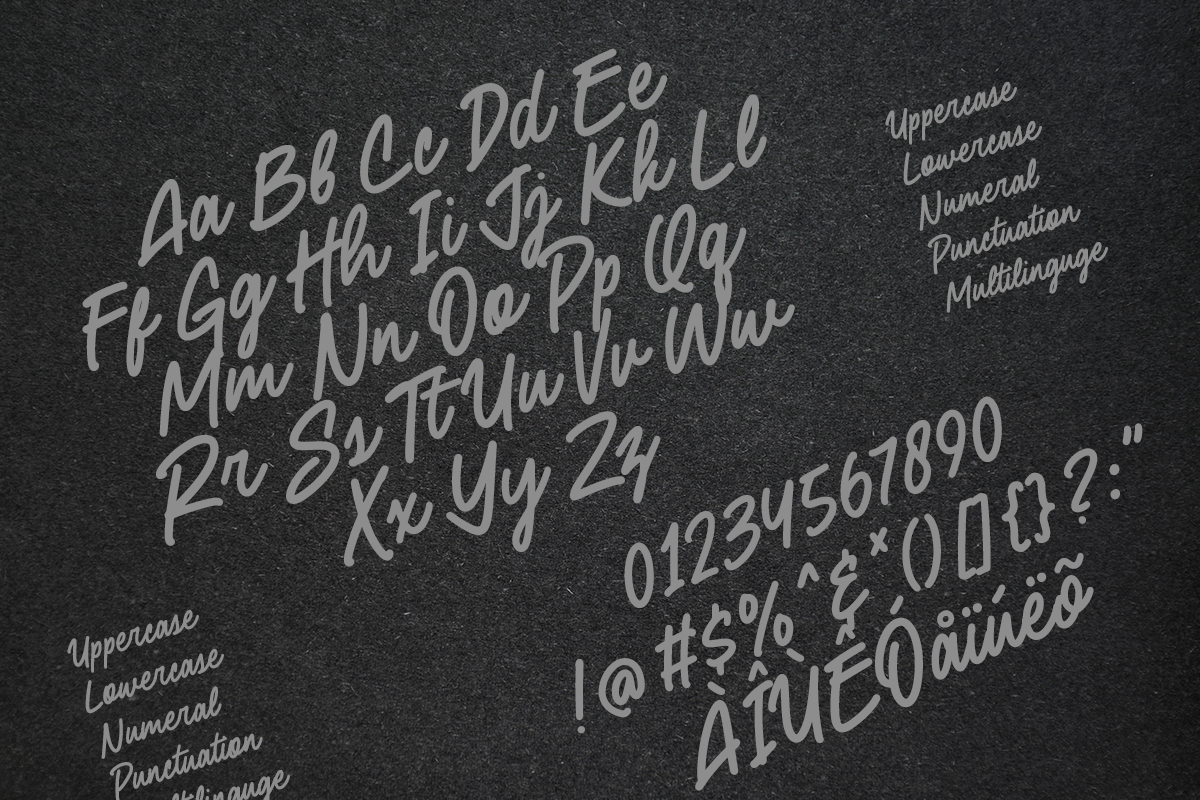 Aa Bb Cc Dd Ee
Ff Gg Hh Ii Jj Kk Ll
Mm Nn Oo Pp Qq
Rr Ss Tt Uu Vv Ww
Xx Yy Zz
Uppercase
Lowercase
Numeral
Punctuation
Multilinguge
01234567890
!@#$%^&*()[]{}?:"
ÀÎÙÊÓåïúëõ
Uppercase
Lowercase
Numeral
Punctuation